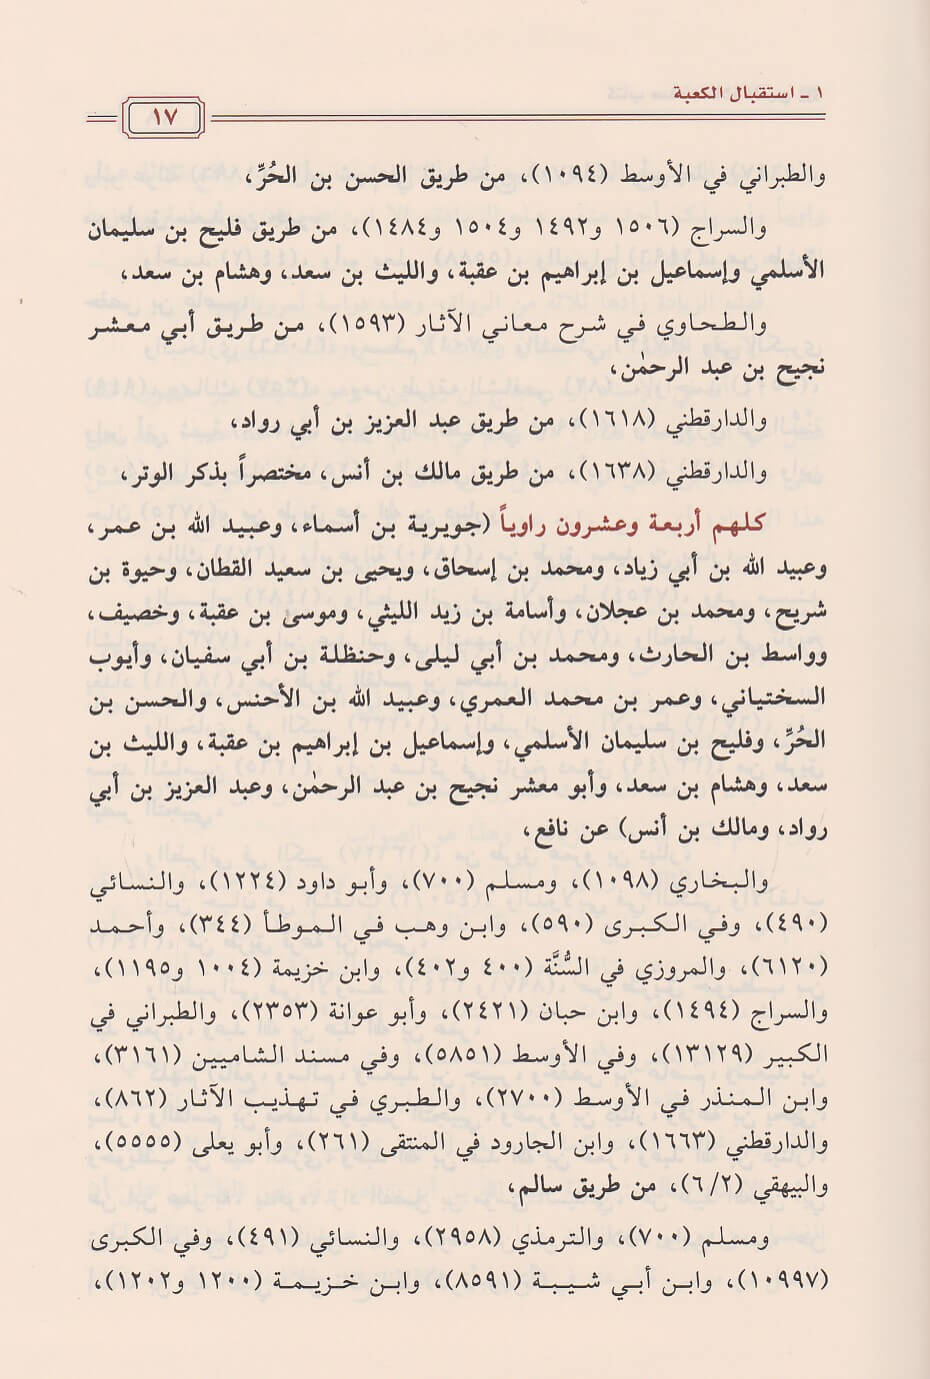 ١ - استقبال الكعبة
١٧
والطبراني في الأوسط (١٠٩٤)، من طريق الحسن بن الحُرِّ،
والسراج (١٥٠٦ و١٤٩٢ و١٥٠٤ و١٤٨٤)، من طريق فليح بن سليمان
الأسلمي وإسماعيل بن إبراهيم بن عقبة، والليث بن سعد، وهشام بن سعد،
والطحاوي في شرح معاني الآثار (١٥٩٣)، من طريق أبي معشر
نجيح بن عبد الرحمٰن،
والدارقطني (١٦١٨)، من طريق عبد العزيز بن أبي رواد،
والدارقطني (١٦٣٨)، من طريق مالك بن أنس، مختصراً بذكر الوتر،
كلهم أربعة وعشرون راوياً (جويرية بن أسماء، وعبيد الله بن عمر،
وعبيد الله بن أبي زياد، ومحمد بن إسحاق، ويحيى بن سعيد القطان، وحيوة بن
شريح، ومحمد بن عجلان، وأسامة بن زيد الليثي، وموسىٰ بن عقبة، وخصيف،
وواسط بن الحارث، ومحمد بن أبي ليلى، وحنظلة بن أبي سفيان، وأيوب
السختياني، وعمر بن محمد العمري، وعبيد الله بن الأحنس، والحسن بن
الحُرِّ، وفليح بن سليمان الأسلمي، وإسماعيل بن إبراهيم بن عقبة، والليث بن
سعد، وهشام بن سعد، وأبو معشر نجيح بن عبد الرحمٰن، وعبد العزيز بن أبي
رواد، ومالك بن أنس) عن نافع،
والبخاري (١٠٩٨)، ومسلم (٧٠٠)، وأبو داود (١٢٢٤)، والنسائي
(٤٩٠)، وفي الكبرى (٥٩٠)، وابن وهب في الموطأ (٣٤٤)، وأحمد
(٦١٢٠)، والمروزي في السُّنَّة (٤٠٠ و٤٠٢)، وابن خزيمة (١٠٠٤ و١١٩٥)،
والسراج (١٤٩٤)، وابن حبان (٢٤٢١)، وأبو عوانة (٢٣٥٣)، والطبراني في
الكبير (١٣١٢٩)، وفي الأوسط (٥٨٥١)، وفي مسند الشاميين (٣١٦١)،
وابن المنذر في الأوسط (٢٧٠٠)، والطبري في تهذيب الآثار (٨٦٢)،
والدارقطني (١٦٦٣)، وابن الجارود في المنتقى (٢٦١)، وأبو يعلى (٥٥٥٥)،
والبيهقي (٦/٢)، من طريق سالم،
ومسلم (٧٠٠)، والترمذي (٢٩٥٨)، والنسائي (٤٩١)، وفي الكبرى
(١٠٩٩٧)، وابن أبي شيبة (٨٥٩١)، وابن خزيمة (١٢٠٠ و١٢٠٢)،